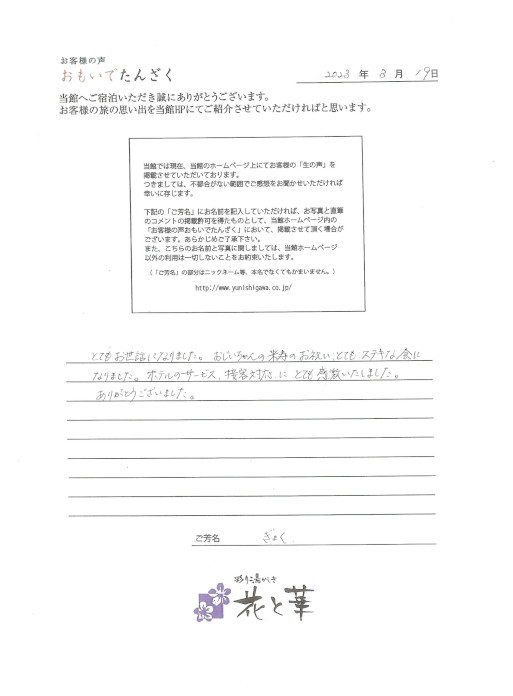 お客様の声
おもいでたんざく
2023 年 3 月 19日
当館へご宿泊いただき誠にありがとうございます。
お客様の旅の思い出を当館HPにてご紹介させていただければと思います。
当館では現在、当館のホームページ上にてお客様の「生の声」を
掲載させていただいております。
つきましては、不都合がない範囲でご感想をお聞かせいただければ
幸いに存じます。
下記の「ご芳名」にお名前を記入していただければ、お写真と直筆
のコメントの掲載許可を得たものとして、当館ホームページ内の
「お客様の声おもいでたんざく」において、掲載させて頂く場合が
ございます。あらかじめご了承下さい。
また、こちらのお名前と写真に関しましては、当館ホームページ
以外の利用は一切しないことをお約束いたします。
(「ご芳名」の部分はニックネーム等、本名でなくてもかまいません。)
http://www.yunishigawa.co.jp/
とてもお世話になりました。おじいちゃんの米寿のお祝い、とてもステキな会に
なりました。ホテルのサービス、接客対応に、とても感激いたしました。
ありがとうございました。
ご芳名 ぎょく
花と華